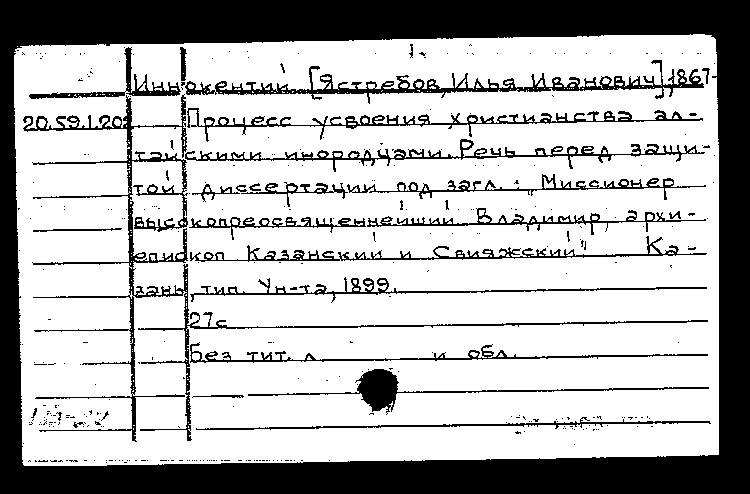 1.
Иннокентий [Ястребов, Илья Иванович], 1867-
20.59.1.202 Процесс усвоения христианства ал-
тайскими инородцами. Речь перед защи-
той диссертации под загл.: „Миссионер
высокопреосвященнейший Владимир, архи-
епископ Казанский и Свияжский" Ка-
зань, тип. Ун-та, 1899.
27с
Без тит. л. и обл.